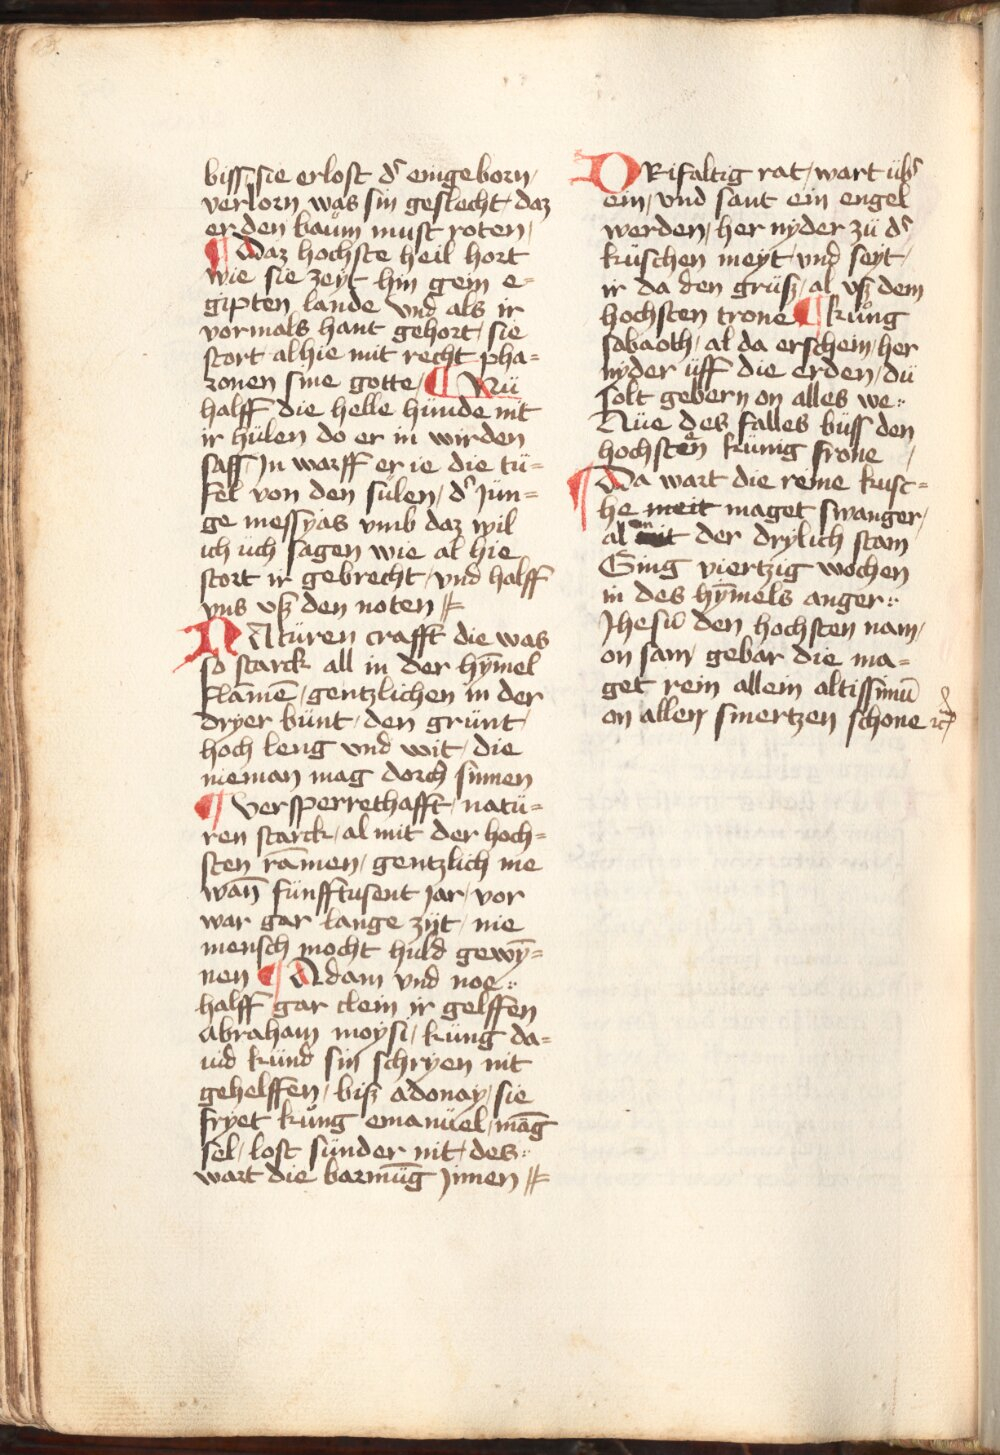 biss sie erlost d' eingeborn /
verlorn was sin geslecht / daz
er den baüm must roten /
¶ Daz hochste heil hort
wie sie zeyt hin gein e=
gipten lande vnd als ir
vormals hant gehort / sie
stort alhie mit recht pha=
zonen sine gotte / ¶ Nü
halff die helle hünde nit
ir hülen do er in wirden
sass / Jn warff er ie die tü=
fel von den sülen / d' Jün=
ge messyas vmb daz wil
ich üch sagen wie al hie
stort ir gebrecht / vnd halff
vns vß den noten
NAtüren crafft die was
so starck all in der hym̄el
flam̄ē / gentzlichen in der
dryer bünt / den grünt /
hoch leng vnd wit / die
nieman mag dorch sinnen
¶ Versperrethafft / natü=
ren starck / al mit der hoch=
sten ram̄en / gentzlich nie
wan̄ fünfftusent jar / vor
war gar lange zijt / nie
mensch mocht huld gewȳ=
nen ¶ Adam vnd noe
halff gar clein ir gelffen
Abraham moysi / küng da=
uid künd sin schryen nit
gehelffen / biß adonay / sie
fryet küng emanüel / mang
sel / lost sünder nit / des
wart die barmūg Jnnen
DRifaltig rat / wart üb'
ein / vnd sant ein engel
werden / her nyder zü d'
küschen meyt / vnd seyt /
ir da den grüß / al vß dem
hochsten trone ¶ küng
sabaoth / al da erschein / her
nyder üff die erden / dü
solt gebern on alles we
Nüe des falles büss den
hochsten künig frone /
¶ Da wart die reine kusc=
he meit maget swanger /
al mit der drylich stam
Ging viertzig wochen
in des hym̄els anger
Jhesū den hochsten nam /
on sam / gebar die ma=
get rein allein altissimū
on allen smertzen schone